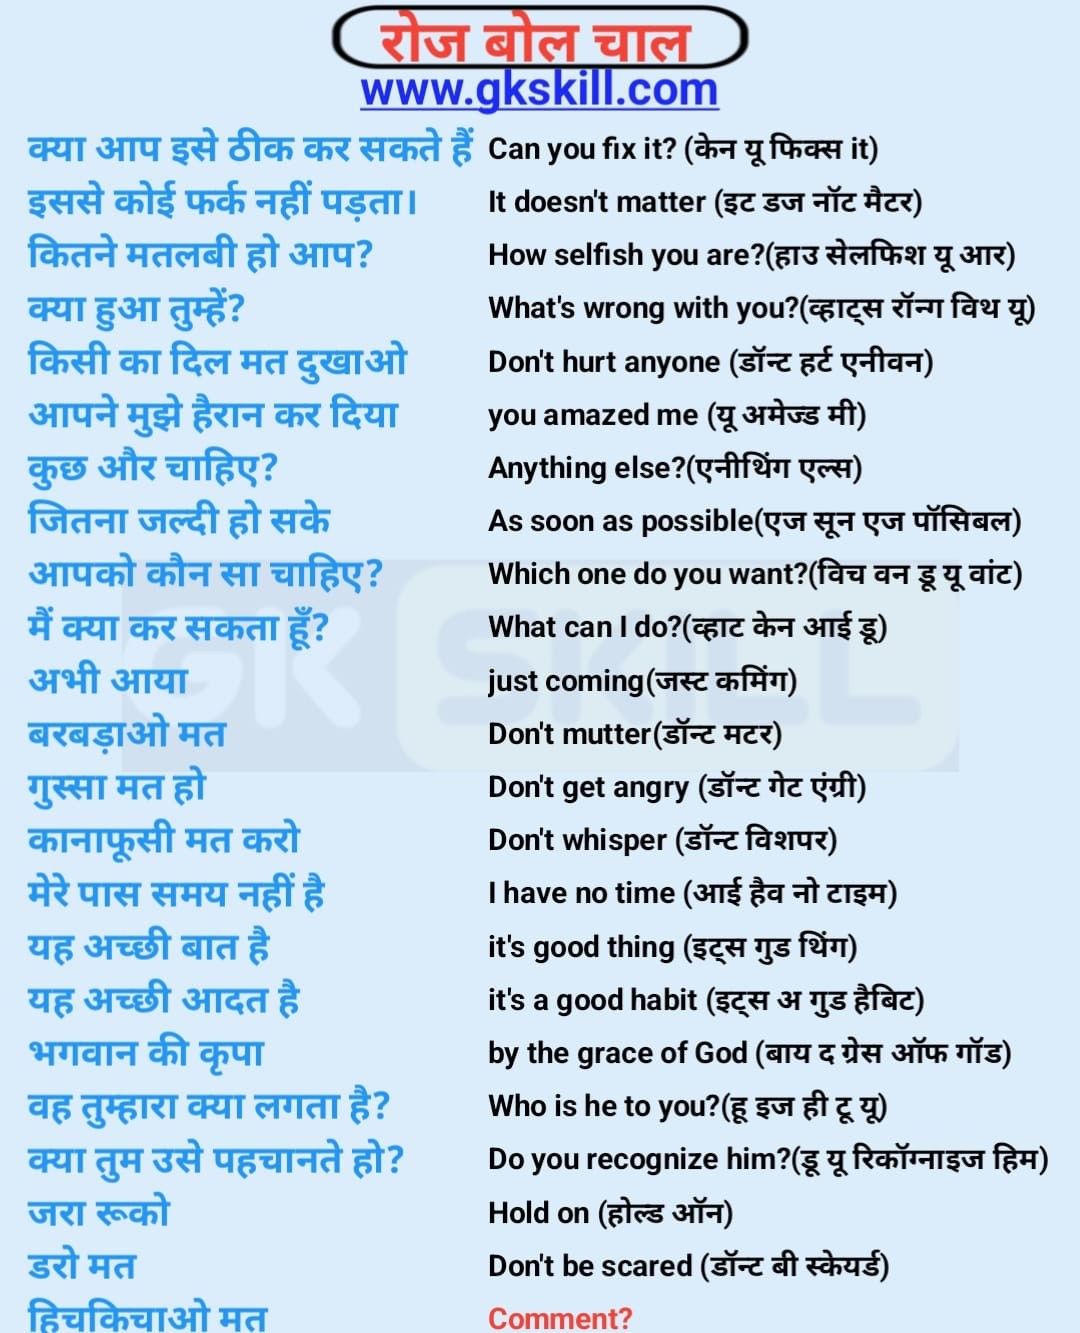 रोज बोल चाल
www.gkskill.com
क्या आप इसे ठीक कर सकते हैं Can you fix it? (केन यू फिक्स it)
इससे कोई फर्क नहीं पड़ता। It doesn't matter (इट डज नॉट मैटर)
कितने मतलबी हो आप? How selfish you are?(हाउ सेलफिश यू आर)
क्या हुआ तुम्हें? What's wrong with you?(व्हाट्स रॉन्ग विथ यू)
किसी का दिल मत दुखाओ Don't hurt anyone (डॉन्ट हर्ट एनीवन)
आपने मुझे हैरान कर दिया you amazed me (यू अमेज्ड मी)
कुछ और चाहिए? Anything else?(एनीथिंग एल्स)
जितना जल्दी हो सके As soon as possible(एज सून एज पॉसिबल)
आपको कौन सा चाहिए? Which one do you want?(विच वन डू यू वांट)
मैं क्या कर सकता हूँ? What can I do?(व्हाट केन आई डू)
GK SKILL
अभी आया just coming(जस्ट कमिंग)
बरबड़ाओ मत Don't mutter(डॉन्ट मटर)
गुस्सा मत हो Don't get angry (डॉन्ट गेट एंग्री)
कानाफूसी मत करो Don't whisper (डॉन्ट विशपर)
मेरे पास समय नहीं है I have no time (आई हैव नो टाइम)
यह अच्छी बात है it's good thing (इट्स गुड थिंग)
यह अच्छी आदत है it's a good habit (इट्स अ गुड हैबिट)
भगवान की कृपा by the grace of God (बाय द ग्रेस ऑफ गॉड)
वह तुम्हारा क्या लगता है? Who is he to you?(हू इज ही टू यू)
क्या तुम उसे पहचानते हो? Do you recognize him?(डू यू रिकॉग्नाइज हिम)
जरा रूको Hold on (होल्ड ऑन)
डरो मत Don't be scared (डॉन्ट बी स्केयर्ड)
हिचकिचाओ मत Comment?